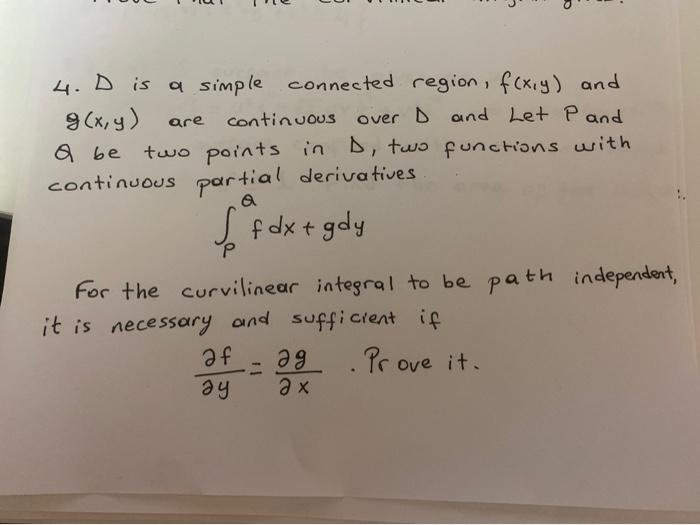 4. D is a simple connected region, f(x,y) and
g(x,y) are continuous over D and Let P and
Q be two points in D, two functions with
continuous partial derivatives.
∫_P^Q f dx + g dy
For the curvilinear integral to be path independent,
it is necessary and sufficient if
∂f/∂y = ∂g/∂x . Prove it.